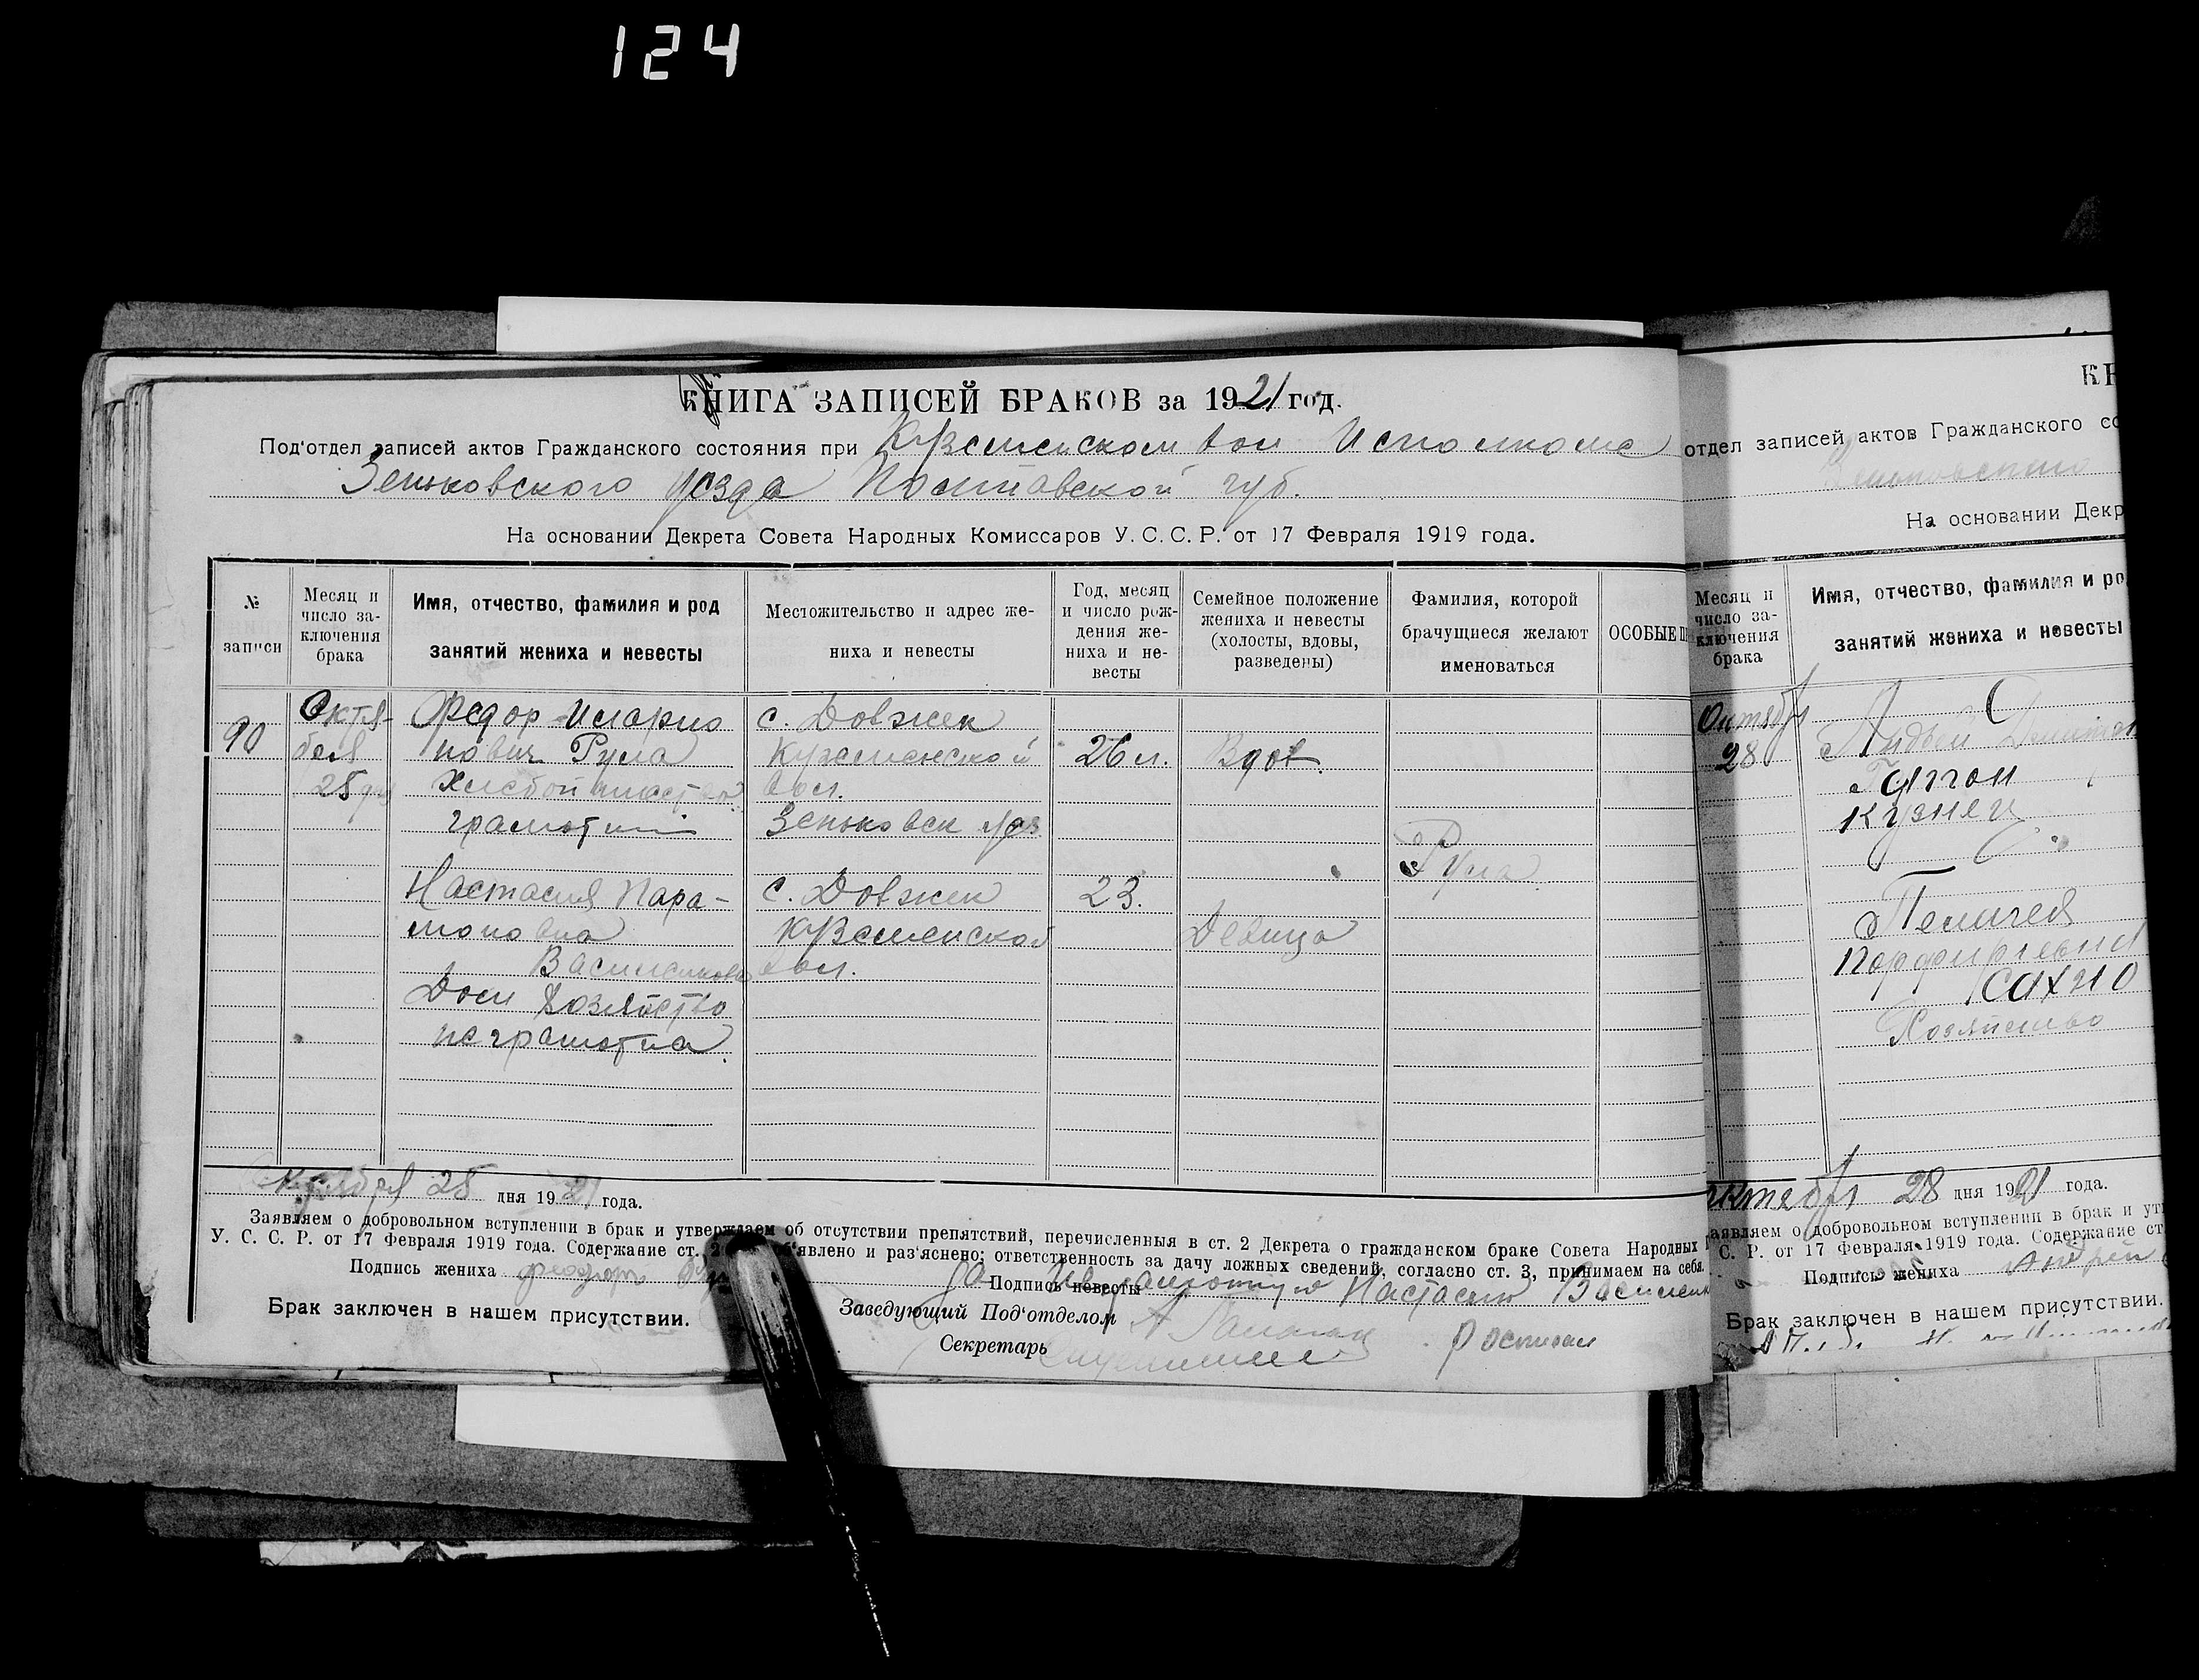 124
КНИГА ЗАПИСЕЙ БРАКОВ за 1921 год.
Под'отдел записей актов Гражданского состояния при Куземенском вол Исполкоме
Зеньковского уезда Полтавской губ.
На основании Декрета Совета Народных Комиссаров У. С. С. Р. от 17 Февраля 1919 года.
№ записи
Месяц и число заключения брака
Имя, отчество, фамилия и род занятий жениха и невесты
Местожительство и адрес жениха и невесты
Год, месяц и число рождения жениха и невесты
Семейное положение жениха и невесты (холосты, вдовы, разведены)
Фамилия, которой брачущиеся желают именоваться
ОСОБЫЕ
90
Октя-
бря
25 дня
Федор Иларио
нович Рула
грамотний
с. Довжек
Куземенской
вол.
Зеньковск уез
26 л.
Вдов.
Рула
Настасия Пара-
моновна
Василенкова
Дом хозяйство
неграмотна.
с. Довжек
Куземенской
вол.
23.
Девица
Октября 25 дня 1921 года.
Заявляем о добровольном вступлении в брак и утверждаем об отсутствии препятствий, перечисленныя в ст. 2 Декрета о гражданском браке Совета Народных
У. С. С. Р. от 17 Февраля 1919 года. Содержание ст. 2 об'явлено и раз'яснено; ответственность за дачу ложных сведений, согласно ст. 3, принимаем на себя.
Подпись жениха Феодор
Подпись невесты За неграмотную Настасию Василенк
Брак заключен в нашем присутствии.
Заведующий Под'отделом
Секретарь
Росписал
КН
отдел записей актов Гражданского со
Зеньковского
На основании Декр
Месяц и число заключения брака
Имя, отчество, фамилия и ро
занятий жениха и невесты
Октябр
28
Андрей
кузнец
Пелагея
Порфирьевна
Сахно
Хозяйство
октября 28 дня 1921 года.
аявляем о добровольном вступлении в брак и ут
С. Р. от 17 Февраля 1919 года. Содержание ст
Подпись жениха Андрей
Брак заключен в нашем присутствии.